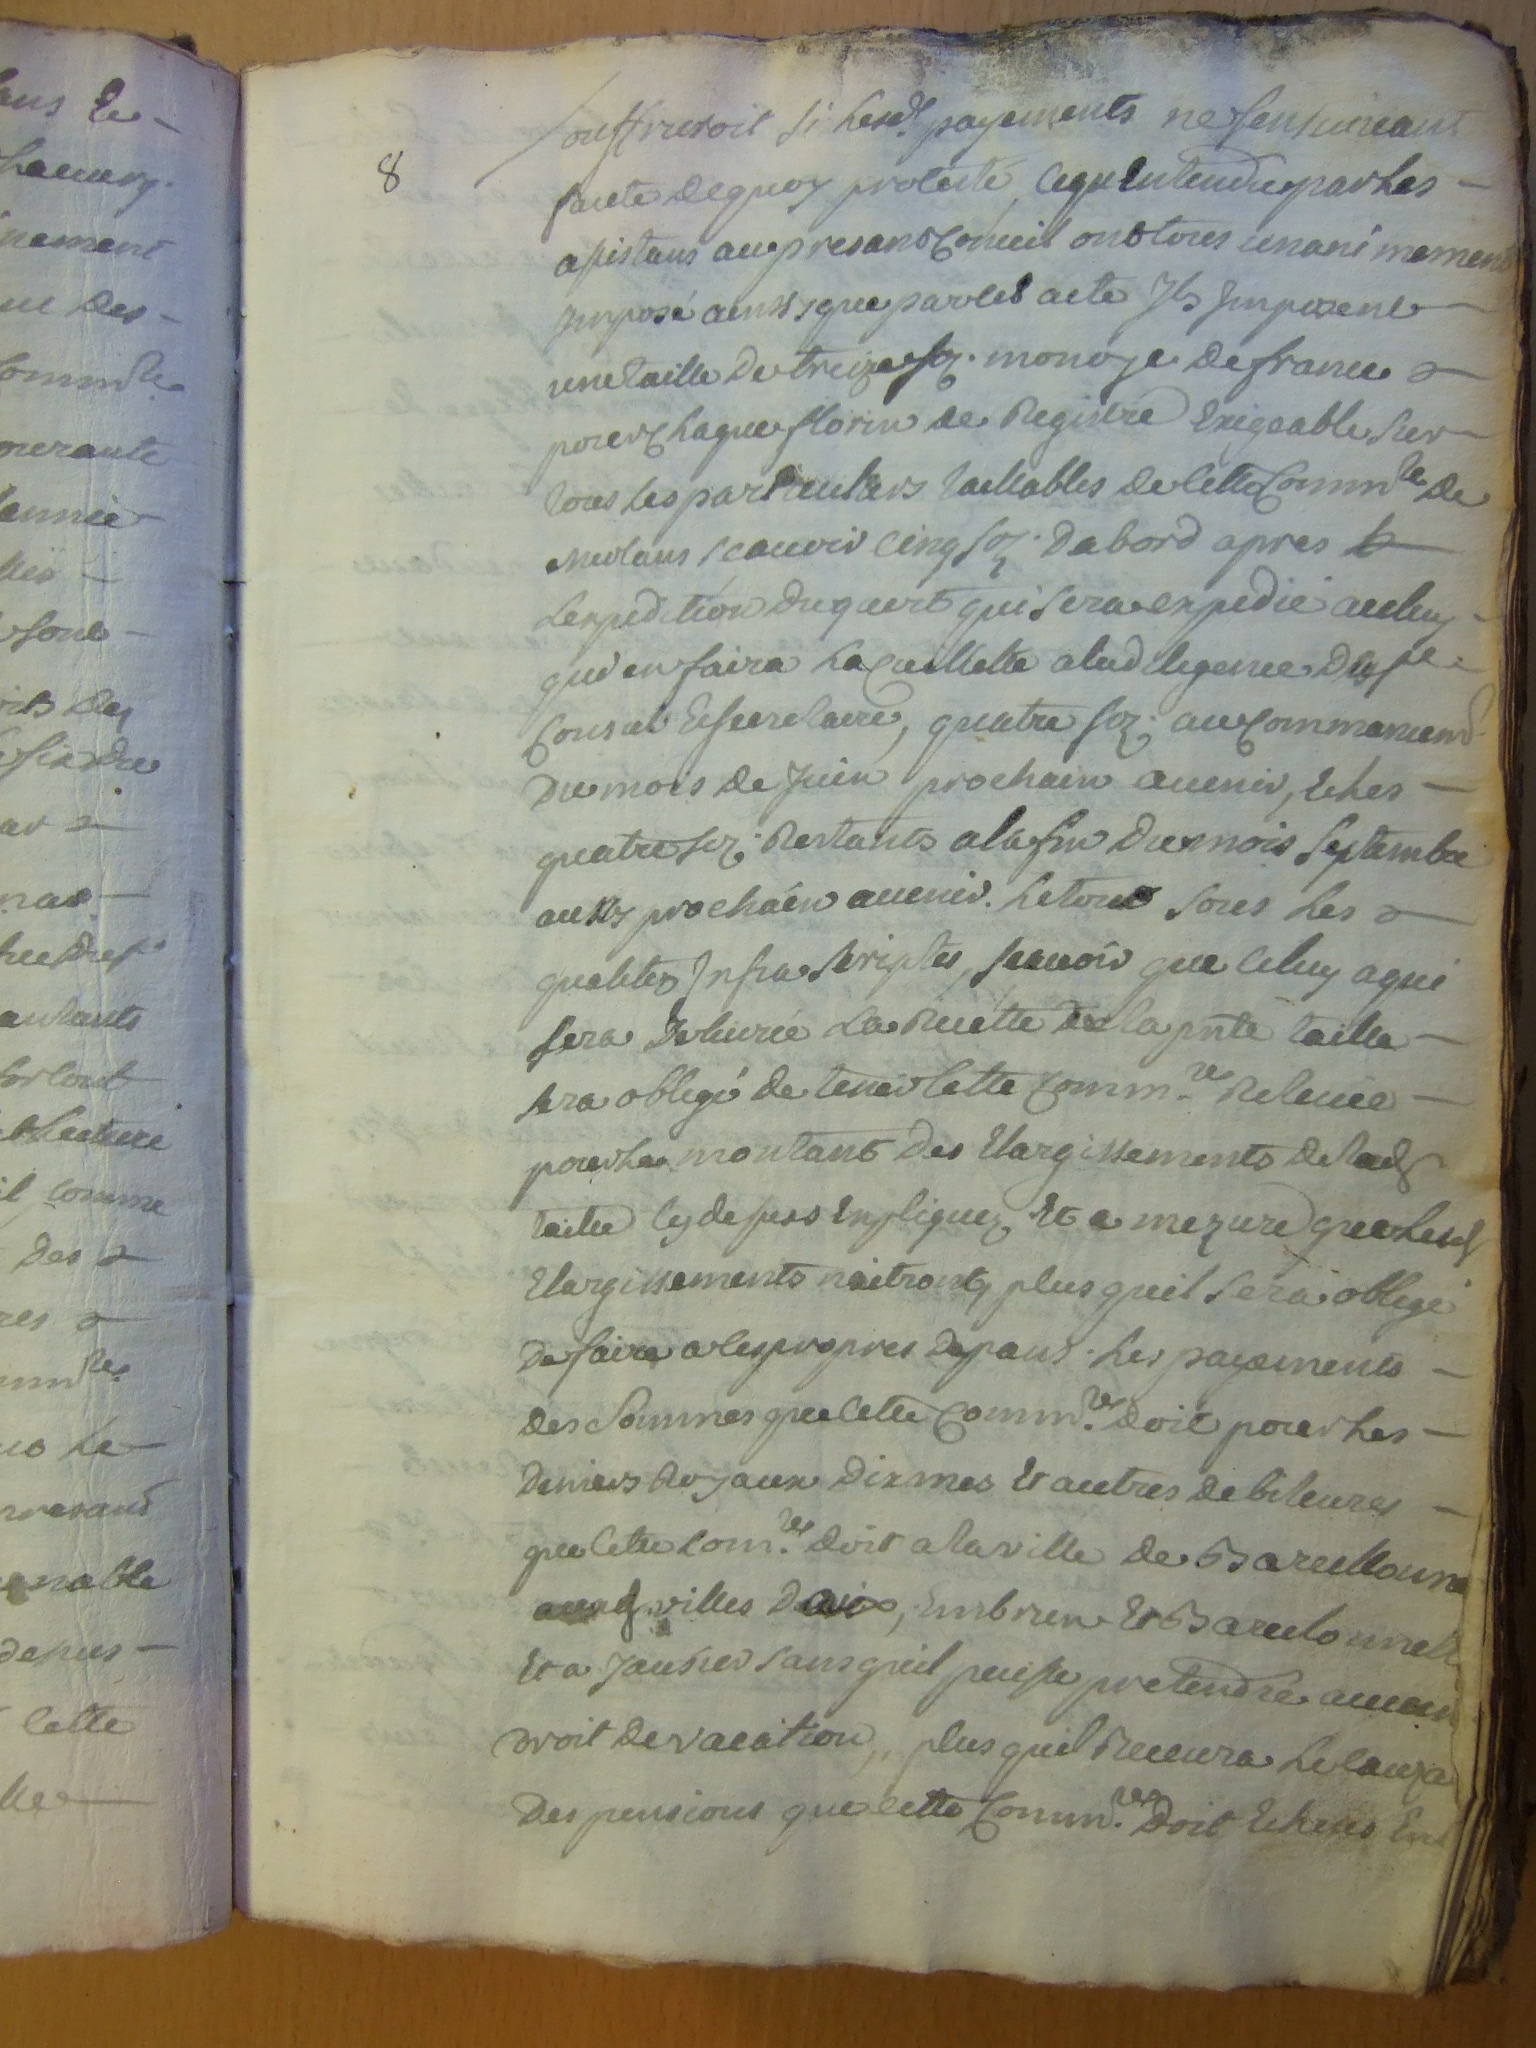 8
souffriroit si lesd. payements ne sensuiveant
faute dequoy proteste, cequ Entendu par les
assistans au presant Conseil ont tous unanimement
Imposé ainssy que par cet acte Ils Imposent
une taille de treize soz. monoye de france
pour chaque florin de Registre Exigeable sur
tous les particuliers taillables de cette Commte. de
Meolans scauoir cinq soz. dabord apres
Lexpedition du quert qui sera expedié a celuy
qui en faira la Cueillette a la diligence du sr.
Consul et secretaire, quatre soz. au Commancemt.
du mois de Juin prochain auenir, et les
quatre soz. Restants a la fin du mois septambre
aussy prochain auenir. le tout sous les
qualites Infra scriptes, scauoir que celuy a qui
sera deliuree La Recette de la pnte taille
sera obligé de tenir cette Commte. Releuee
pour le montant des Elargissements de lad.
taille cy dessus Expliquez, Et a mezure que lesd.
Elargissements naitront, plus quil sera obligé
de faire a ses propres depans les payements
des sommes que cette Commte. doit pour les
deniers Royaux dixmes Et autres debiteures
que cette comte. doit a la ville de Barcellonne
villes daix, Embrun Et Barcelonnette
Et a Jausier sans quil puisse pretendre aucun
droit de vacation, plus quil Receura
des pensions que cette Commte. doit
ans Et
nement
ue des
Commte.
ourante
lannée
sont
rits
fin du
ar
autants
surtout
Lecture
il comme
des
res
uo le
presand
enable
depuis
cette